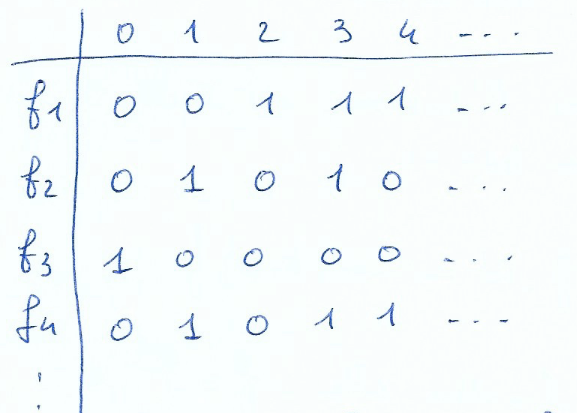 0 1 2 3 4 ...
f1 0 0 1 1 1 ...
f2 0 1 0 1 0 ...
f3 1 0 0 0 0 ...
f4 0 1 0 1 1 ...
⋮